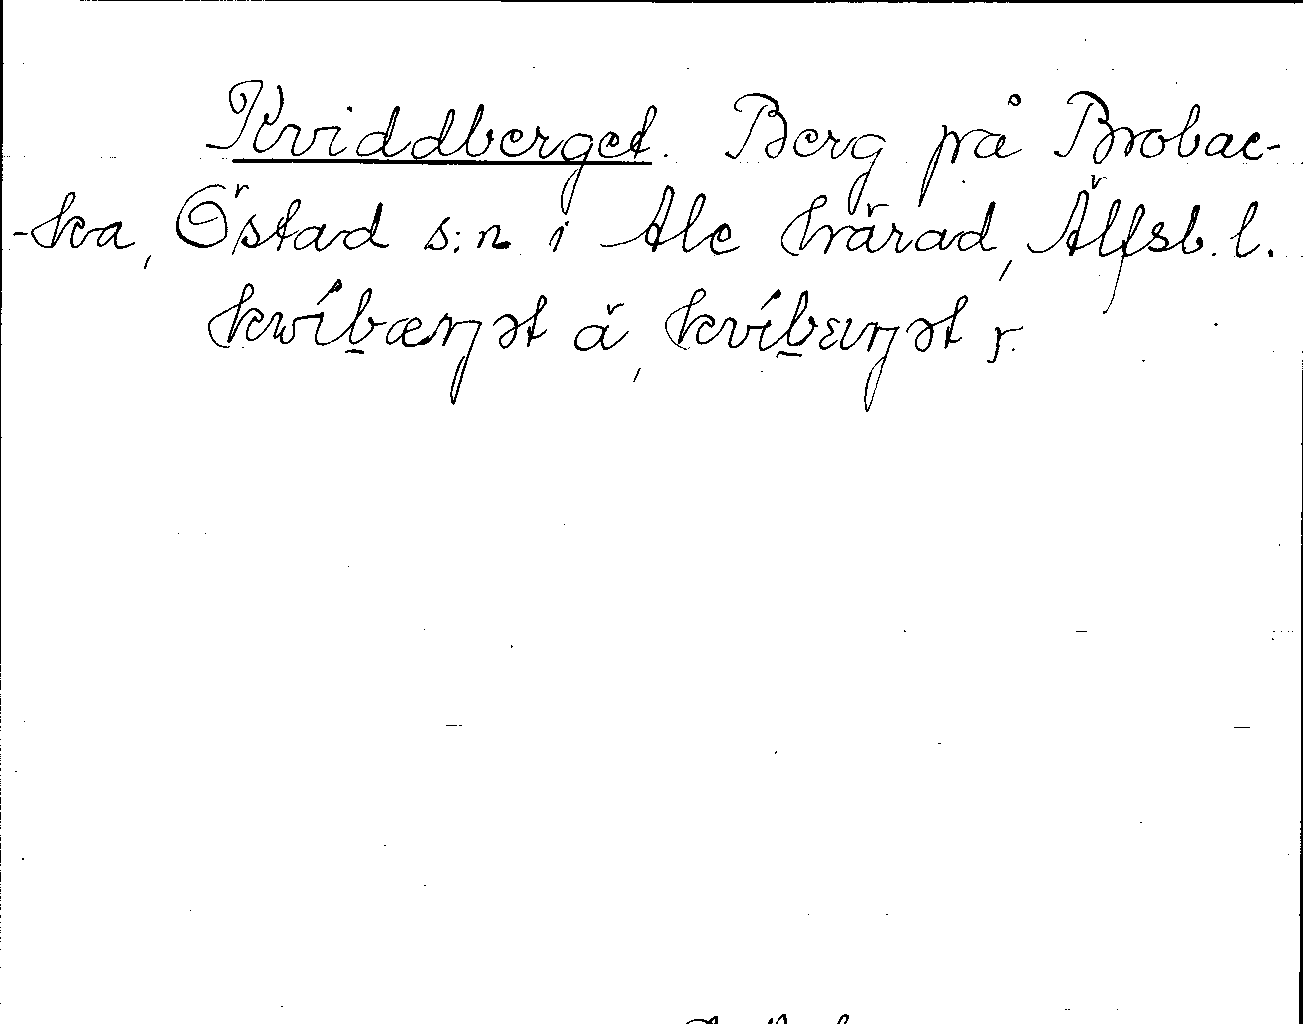 Kviddberget. Berg på Brobac-
-ka, Östad s:n i Ale härad, Älfsb. l.
kwíbærjət ä, kvíbærjət y.